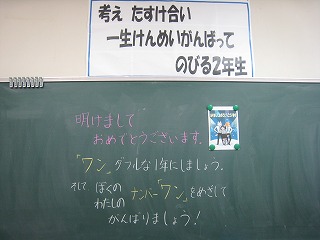 考え たすけ合い
一生けんめいがんばって
のびる2年生
明けまして
おめでとうございます。
「ワン」ダフルな1年にしましょう。
そして ぼくの わたしの ナンバー「ワン」をめざして
がんばりましょう!